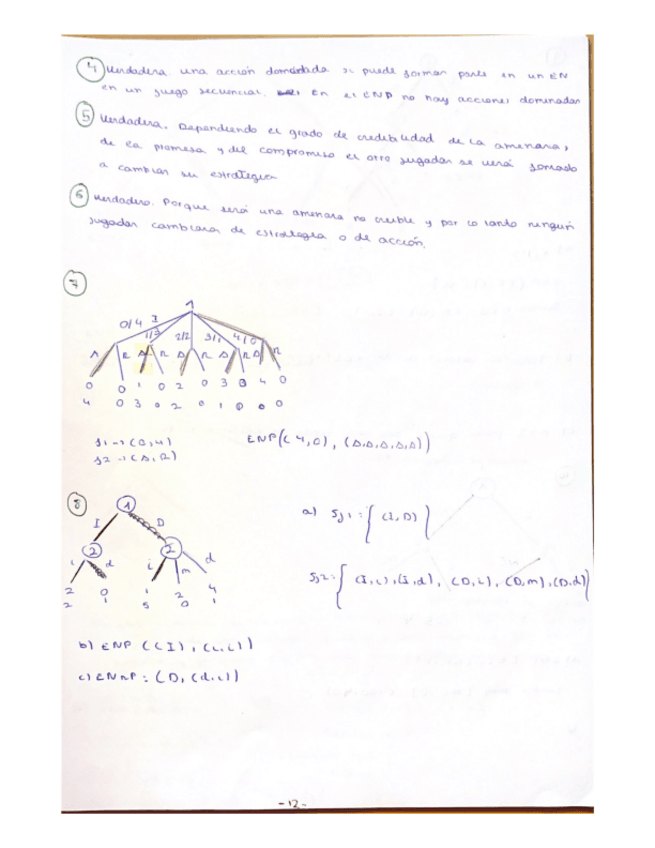 4 Verdadera. una acción dominada si puede formar parte en un EN
en un juego secuencial. En el ENP no hay acciones dominadas
5 Verdadera. Dependiendo el grado de credibilidad de la amenaza,
de la promesa y del compromiso el otro jugador se verá forzado
a cambiar su estrategia
6 Verdadero. Porque será una amenaza no creible y por lo tanto ningún
jugador cambiara de estrategia o de acción.
7
1
0/4 I 1/3 2/2 3/1 4/0
A R A R A R A R A R
0 0 1 0 2 0 3 0 4 0
4 0 3 0 2 0 1 0 0 0
J1 → (0,4)
J2 → (A,R)
ENP((4,0), (A,A,A,A,A))
8
1
I D
2 2
i d i m d
2 0 1 2 4
2 1 5 0 1
a) Sj1 = { (I,D) }
Sj2 = { (I,i), (I,d), (D,i), (D,m), (D,d) }
b) ENP ((I), (i,i))
c) ENnP: (D, (d,i))
-12-